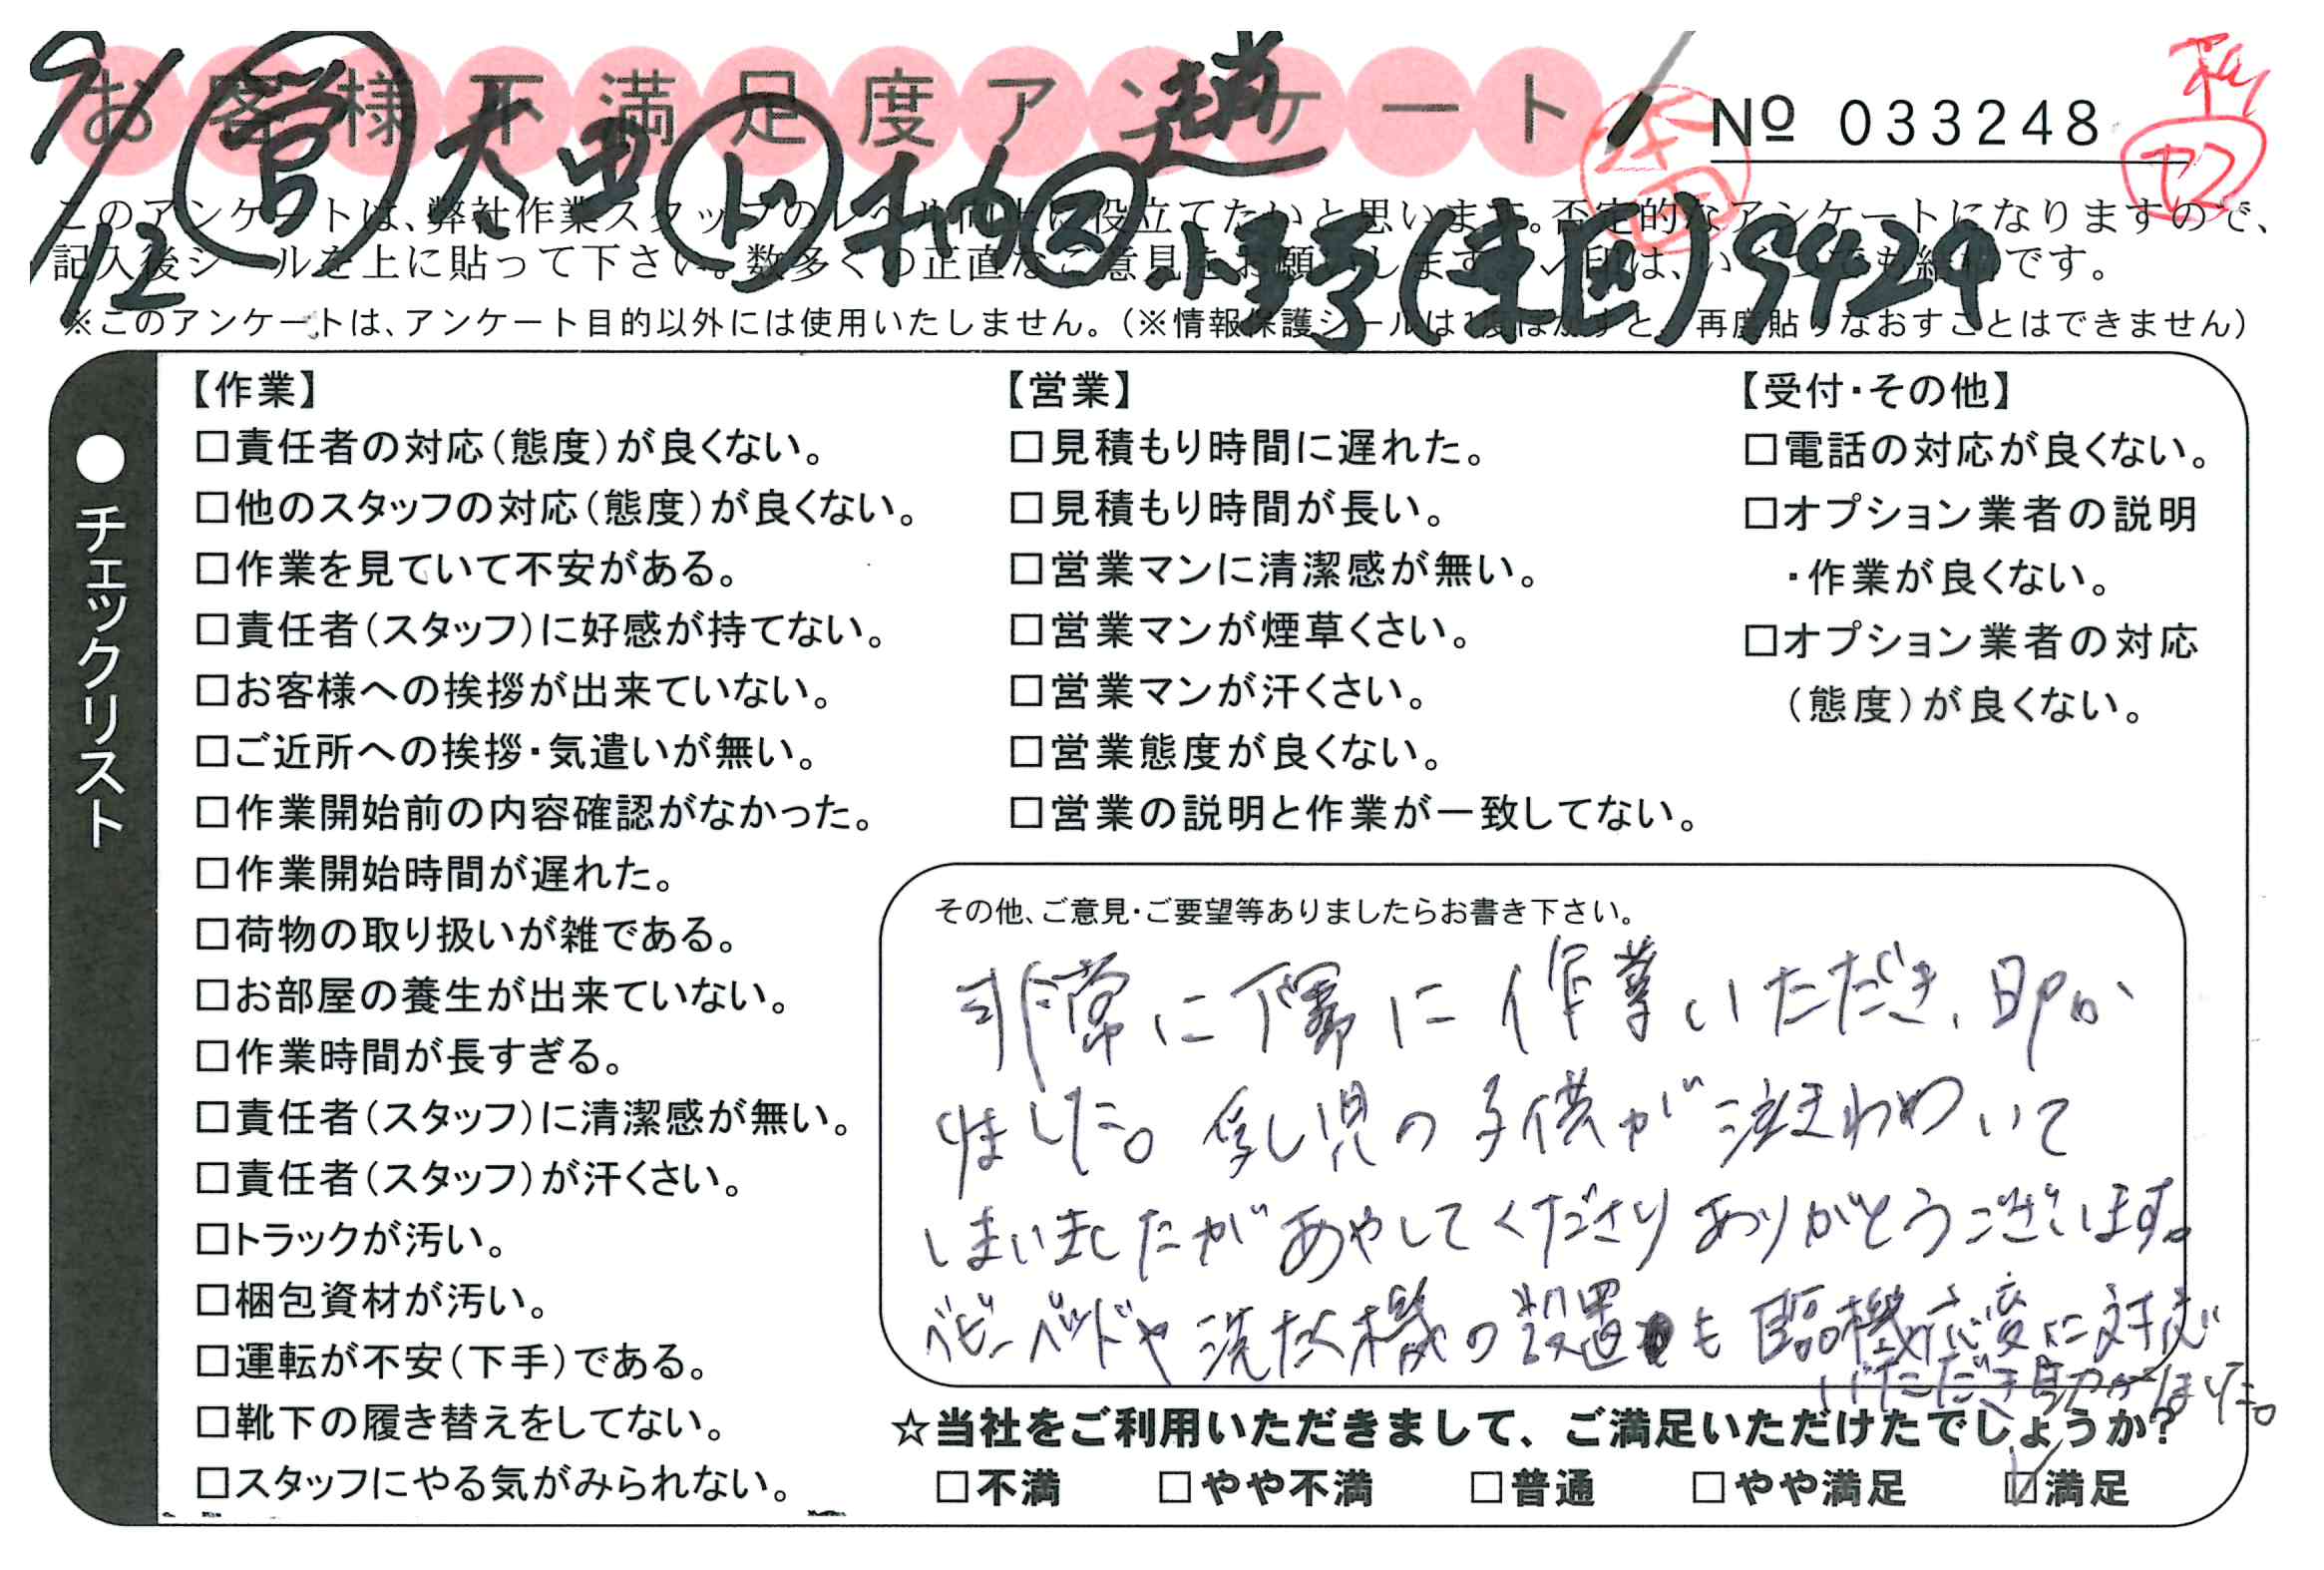 お客様不満足度アンケート
No 033248
9/12 営 大田 ド 神 ス 趙
小野(東区)9424
このアンケートは、弊社作業スタッフのレベル向上に役立てたいと思います。否定的なアンケートになりますので、
記入後シールを上に貼って下さい。数多くの正直なご意見をお願いします。✓印は、いくつでも結構です。
※このアンケートは、アンケート目的以外には使用いたしません。(※情報保護シールは1度はがすと、再度貼りなおすことはできません)
●チェックリスト
【作業】
□責任者の対応(態度)が良くない。
□他のスタッフの対応(態度)が良くない。
□作業を見ていて不安がある。
□責任者(スタッフ)に好感が持てない。
□お客様への挨拶が出来ていない。
□ご近所への挨拶・気遣いが無い。
□作業開始前の内容確認がなかった。
□作業開始時間が遅れた。
□荷物の取り扱いが雑である。
□お部屋の養生が出来ていない。
□作業時間が長すぎる。
□責任者(スタッフ)に清潔感が無い。
□責任者(スタッフ)が汗くさい。
□トラックが汚い。
□梱包資材が汚い。
□運転が不安(下手)である。
□靴下の履き替えをしてない。
□スタッフにやる気がみられない。
【営業】
□見積もり時間に遅れた。
□見積もり時間が長い。
□営業マンに清潔感が無い。
□営業マンが煙草くさい。
□営業マンが汗くさい。
□営業態度が良くない。
□営業の説明と作業が一致してない。
【受付・その他】
□電話の対応が良くない。
□オプション業者の説明
・作業が良くない。
□オプション業者の対応
(態度)が良くない。
その他、ご意見・ご要望等ありましたらお書き下さい。
非常に丁寧に作業いただき、助か
りました。乳児の子供が泣きわめいて
しまいましたがあやしてくださりありがとうございます。
ベビーベッドや洗たく機の設置も臨機応変に対応
いただき助かりました。
☆当社をご利用いただきまして、ご満足いただけたでしょうか?
□不満 □やや不満 □普通 □やや満足 ☑満足